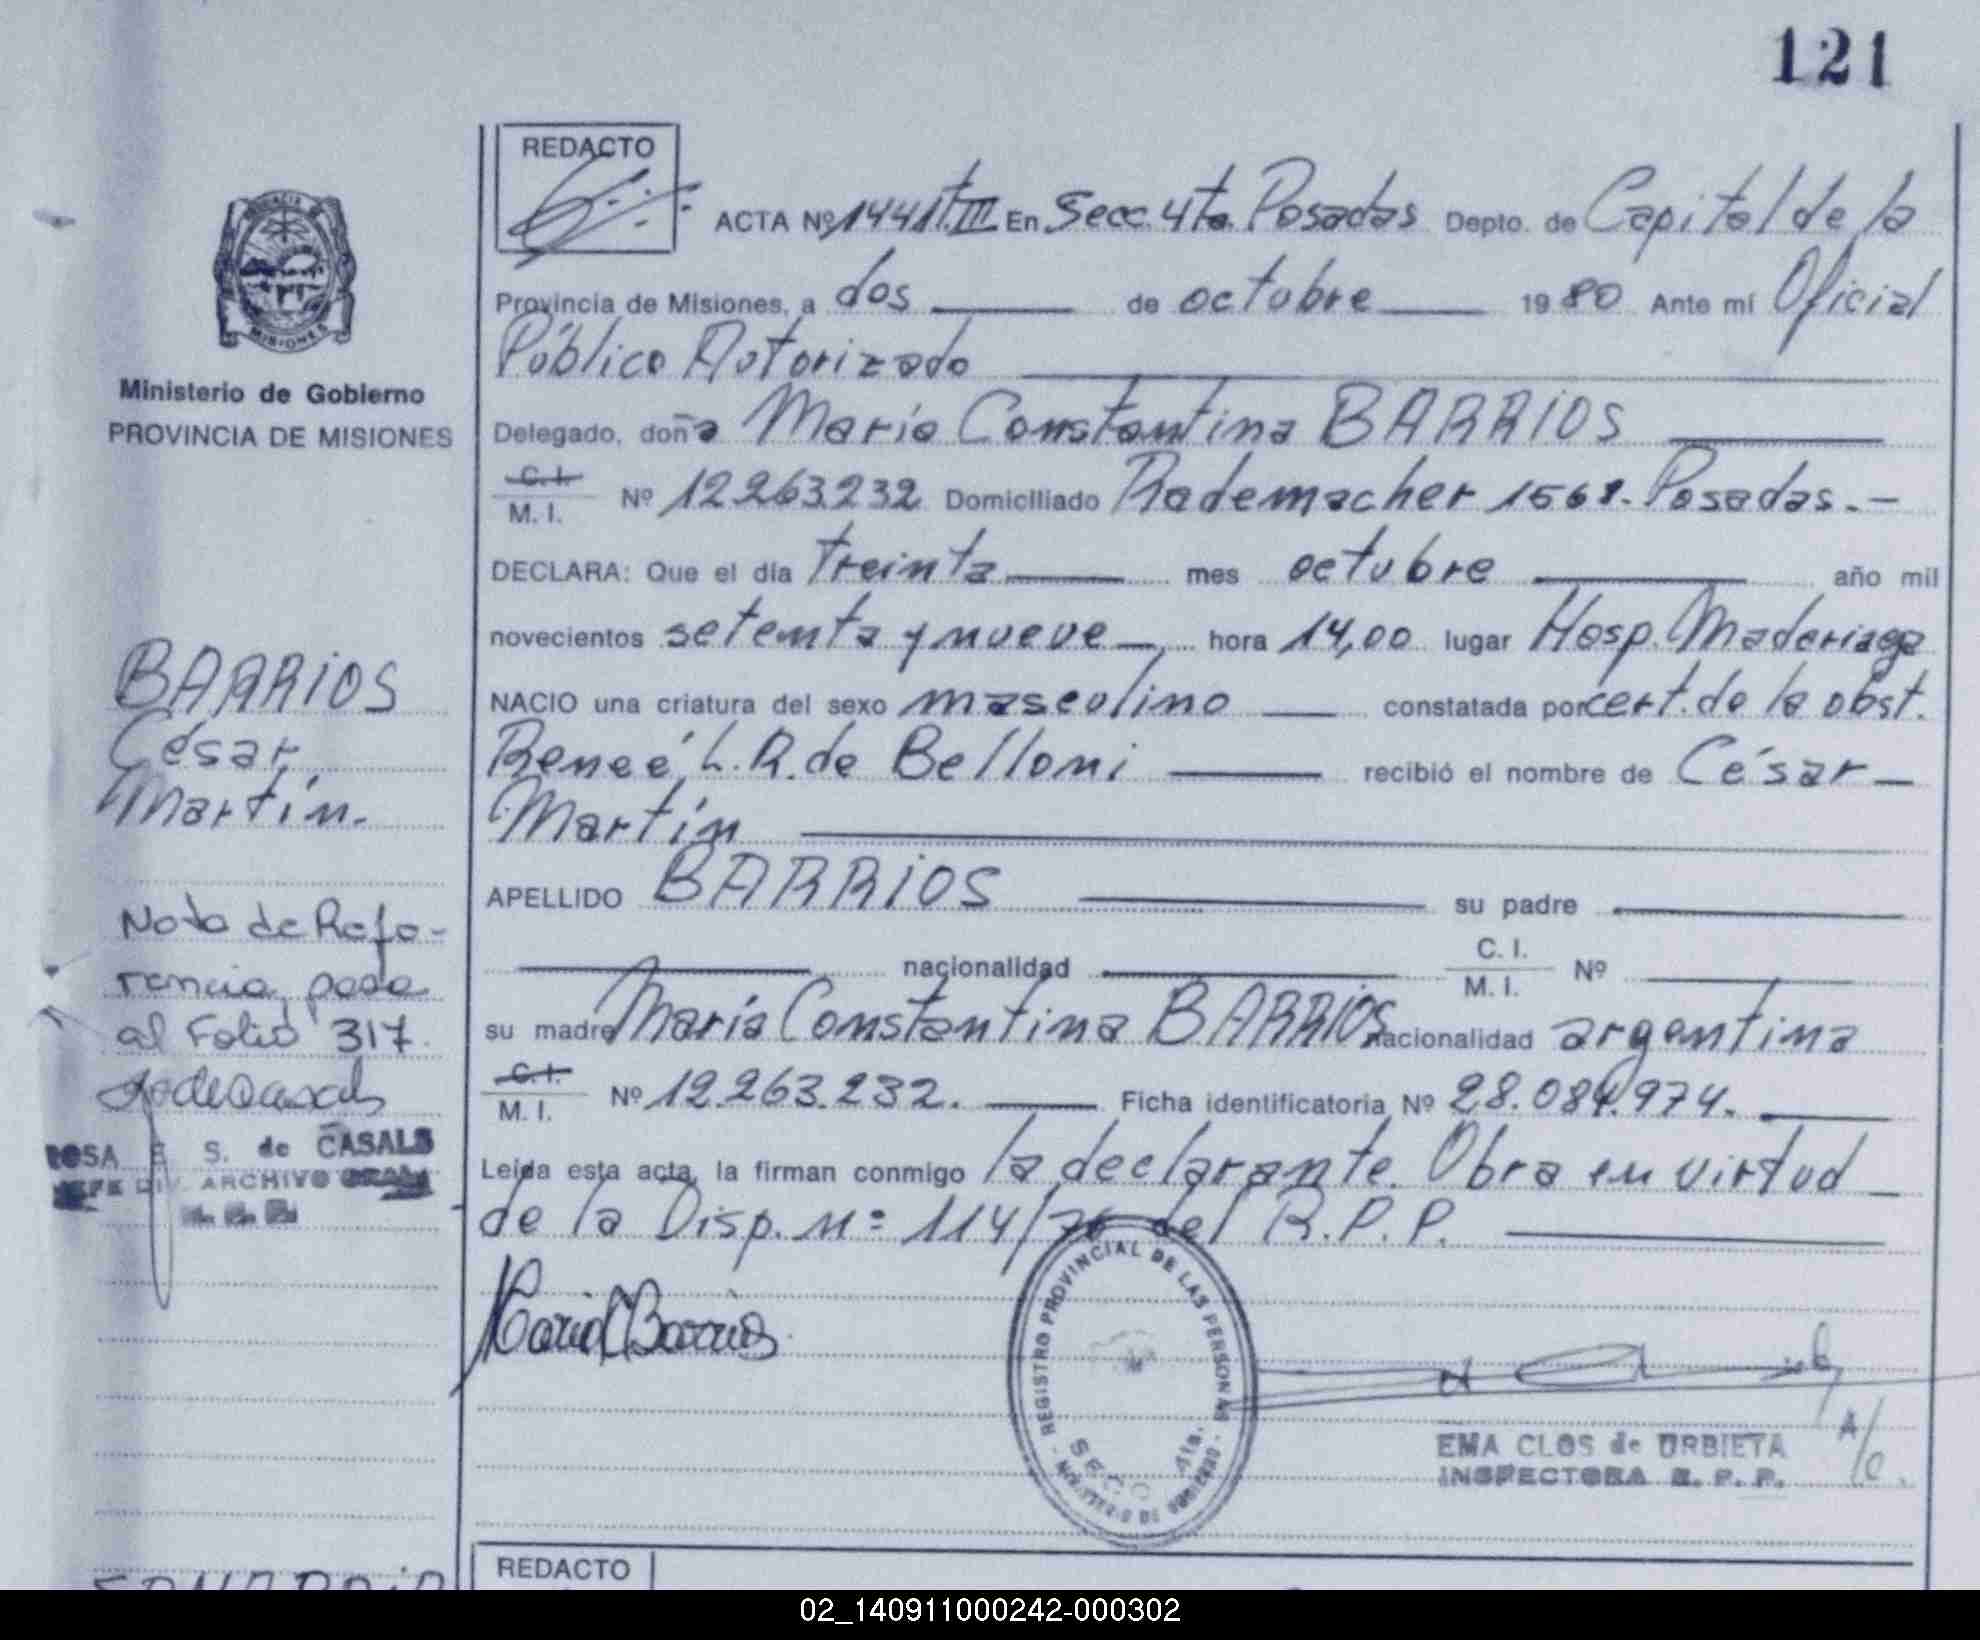 121
REDACTO
ACTA Nº 1441 T. III En Secc. 4ta. Posadas Depto. de Capital de la
Provincia de Misiones, a dos de octubre 1980 Ante mí Oficial
Público Autorizado
Ministerio de Gobierno
PROVINCIA DE MISIONES
Delegado, doña María Constantina BARRIOS
C.I.
M. I. Nº 12.263.232 Domiciliado Rademacher 1568. Posadas.-
DECLARA: Que el día treinta mes octubre año mil
novecientos setenta y nueve hora 14,00 lugar Hosp. Madariaga
NACIO una criatura del sexo masculino constatada por cert. de la obst.
Reneé L. R. de Belloni recibió el nombre de César
Martín
APELLIDO BARRIOS su padre
nacionalidad C. I.
M. I. Nº
su madre María Constantina BARRIOS nacionalidad argentina
C.I.
M. I. Nº 12.263.232. Ficha identificatoria Nº 28.084.974.
Leída esta acta, la firman conmigo la declarante. Obra en virtud
de la Disp. nº 114/76 del R.P.P.
BARRIOS
César
Martín.
Nota de Refe-
rencia pasa
al Folio 317.
ROSA E. S. de CASALS
JEFE DIV. ARCHIVO GRAL.
María C Barrios
REGISTRO PROVINCIAL DE LAS PERSONAS
MINISTERIO DE GOBIERNO
SECC 4ta.
EMA CLOS de URBIETA
INSPECTORA R. P. P.
A/C.
REDACTO
02_140911000242-000302